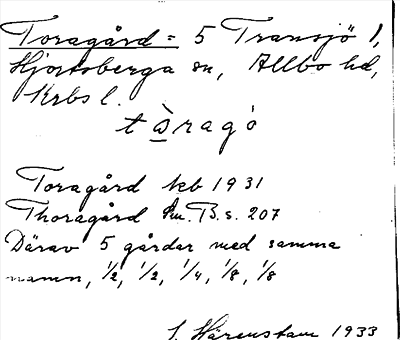 Toragård = 5 Transjö 1,
Hjortsberga sn, Allbo hd,
Krbs l.
tàragó
Toragård kb 1931
Thoragård Sm. B. s. 207
Därav 5 gårdar med samma
namn, 1/2, 1/2, 1/4, 1/8, 1/8
J. Härenstam 1933